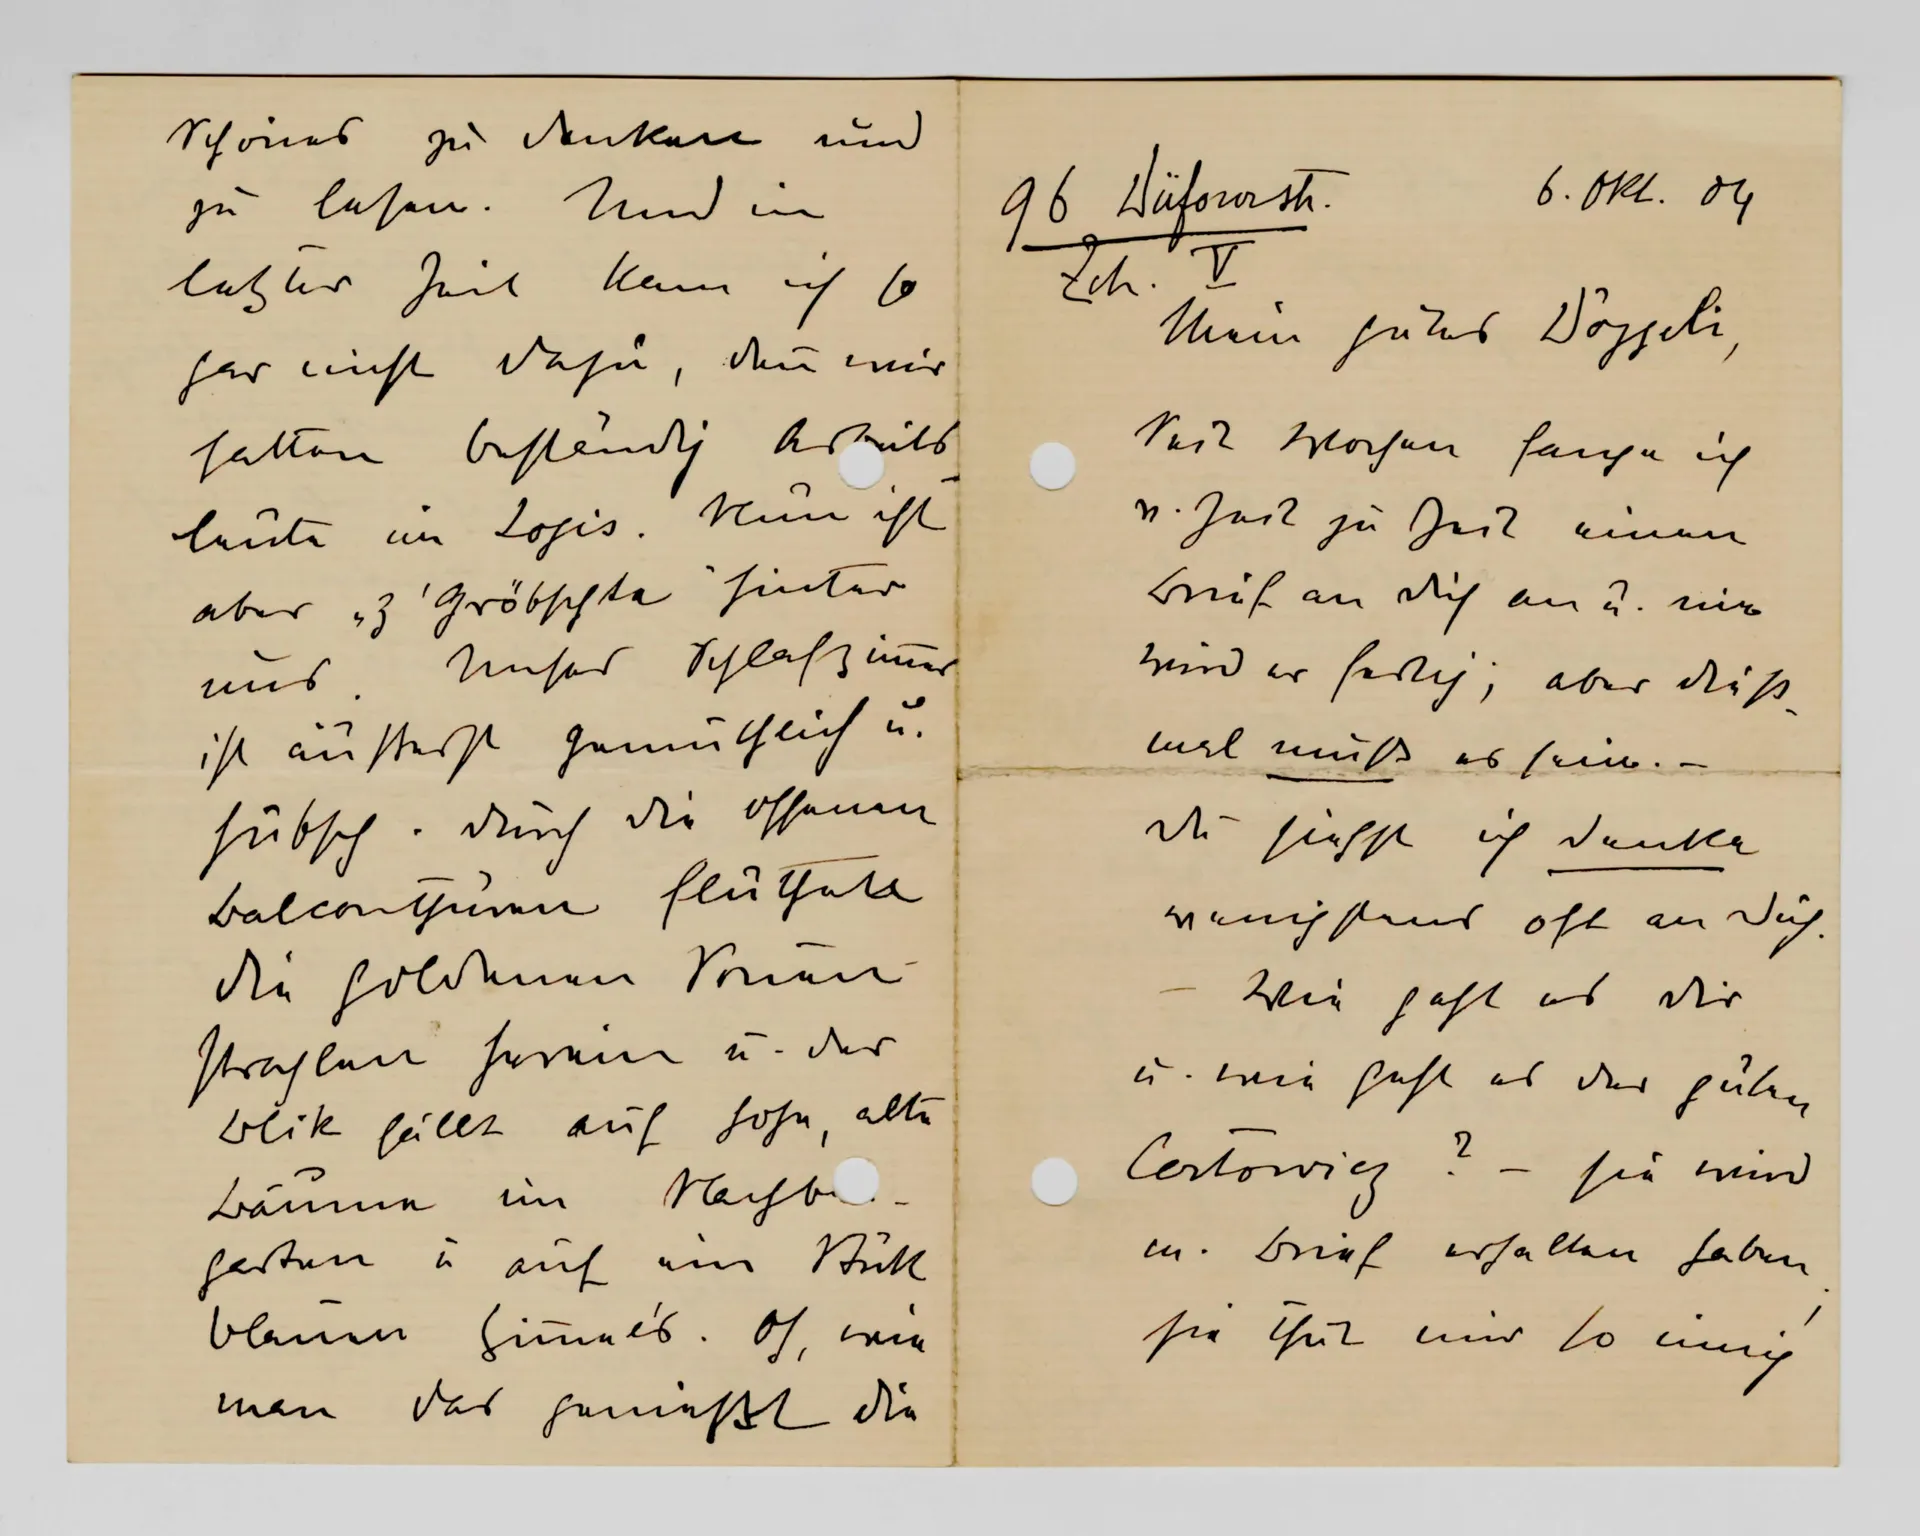 Schönes zu denken und
zu lesen. Und in
letzter Zeit kam ich so
gar nicht dazu, den̄ wir
hatten beständig Arbeits-
leute im Logis. Nun ist
aber „z'Gröbschte" hinter
uns. Unser Schlafzim̄er
ist äußerst gemüthlich u.
hübsch. Durch die offenen
Balconthüren fluthete
die goldenen Son̄en-
strahlen herein u. der
Blik fällt auf hohe, alte
Bäume im Nachb -
garten u auf ein Stük
blauen Him̄els. Oh, wie
man das genießt die
96 Dufourstr. 6. Okt. 04
Zch. V
Mein gutes Döggeli,
Seit Wochen fange ich
v. Zeit zu Zeit einen
Brief an dich an u. nie
wird er fertig; aber dieß-
mal muß es sein. –
Du siehst ich denke
wenigstens oft an dich.
– Wie geht es dir
u. wie geht es der guten
Certowicz? – sie wird
m. Brief erhalten haben,
sie thut mir so innig